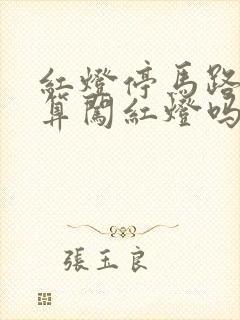 紅燈停馬路
算闖紅燈嗎
張玉良